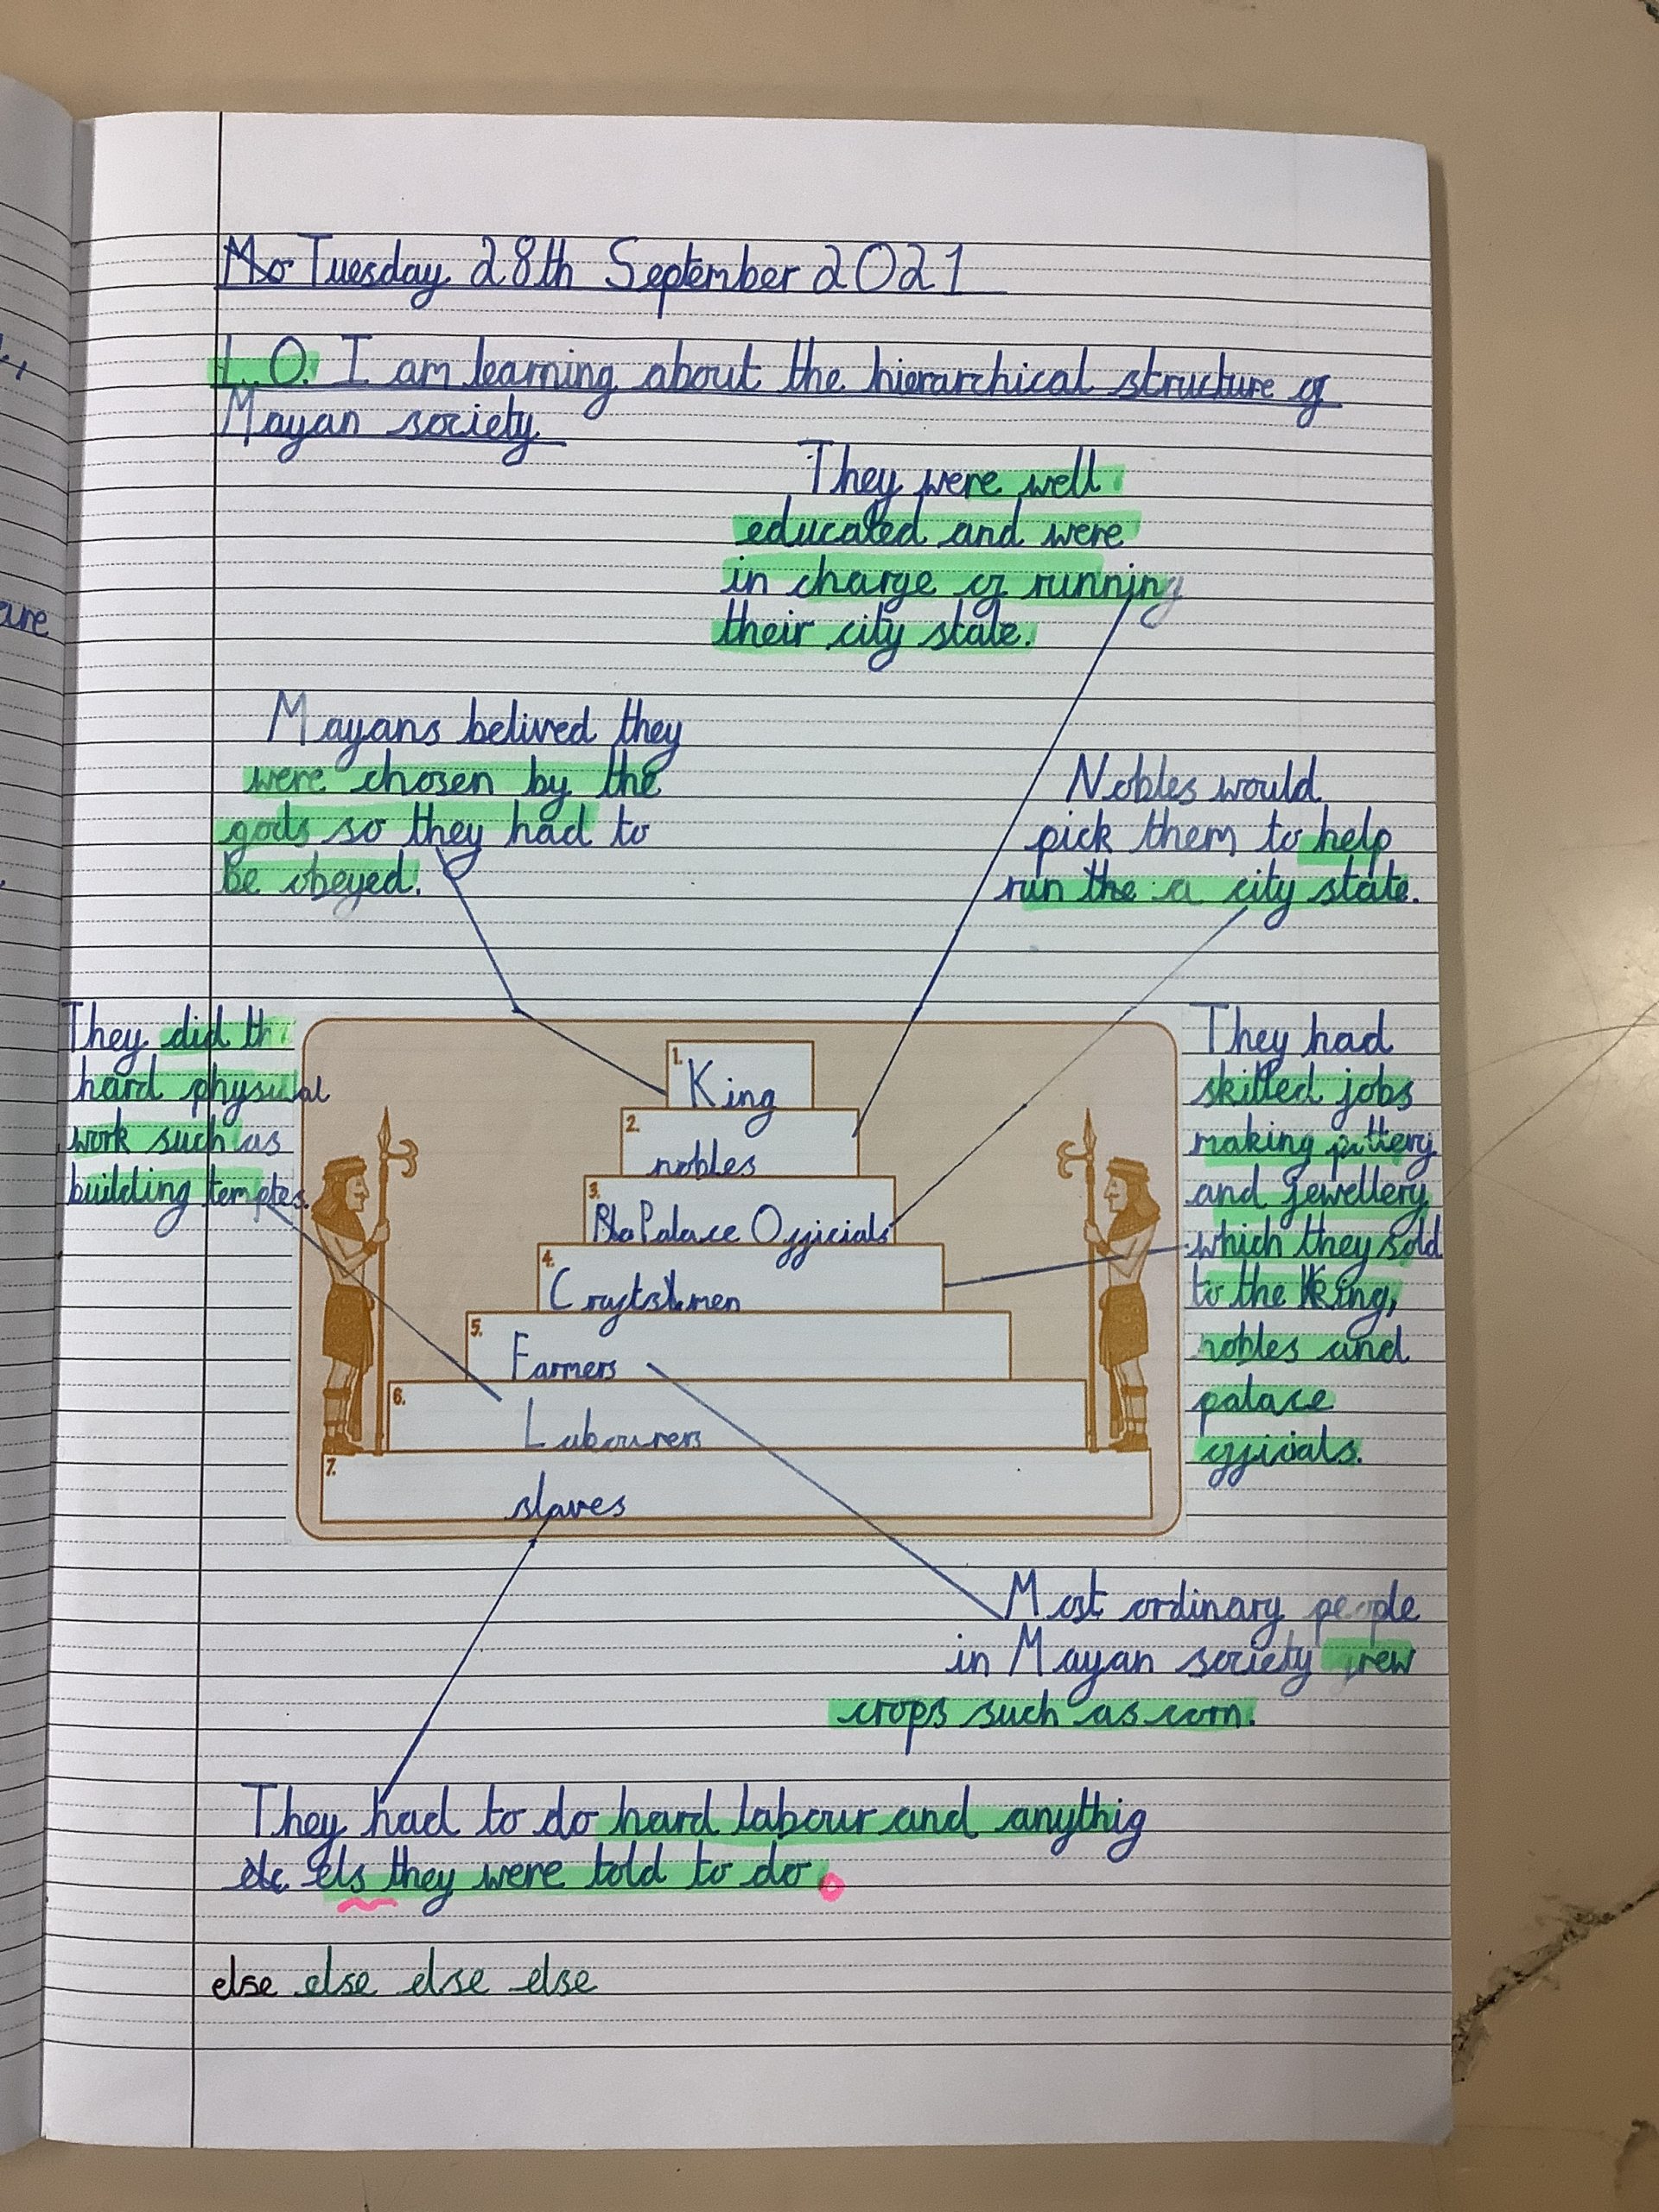 Mo Tuesday 28th September 2021
L.O. I am learning about the hierarchical structure of
Mayan society
They were well
educated and were
in charge of running
their city state.
Mayans belived they
were chosen by the
gods so they had to
be obeyed.
Nobles would
pick them to help
run the a city state.
They did th
hard physical
work such as
building temples.
1. King
2. nobles
3. Palace Officials
4. Craftsmen
5. Farmers
6. Labourers
7. slaves
They had
skilled jobs
making pottery
and jewellery
which they sold
to the King,
nobles and
palace
officials.
Most ordinary people
in Mayan society grew
crops such as corn.
They had to do hard labour and anythig
els they were told to do.
else else else else